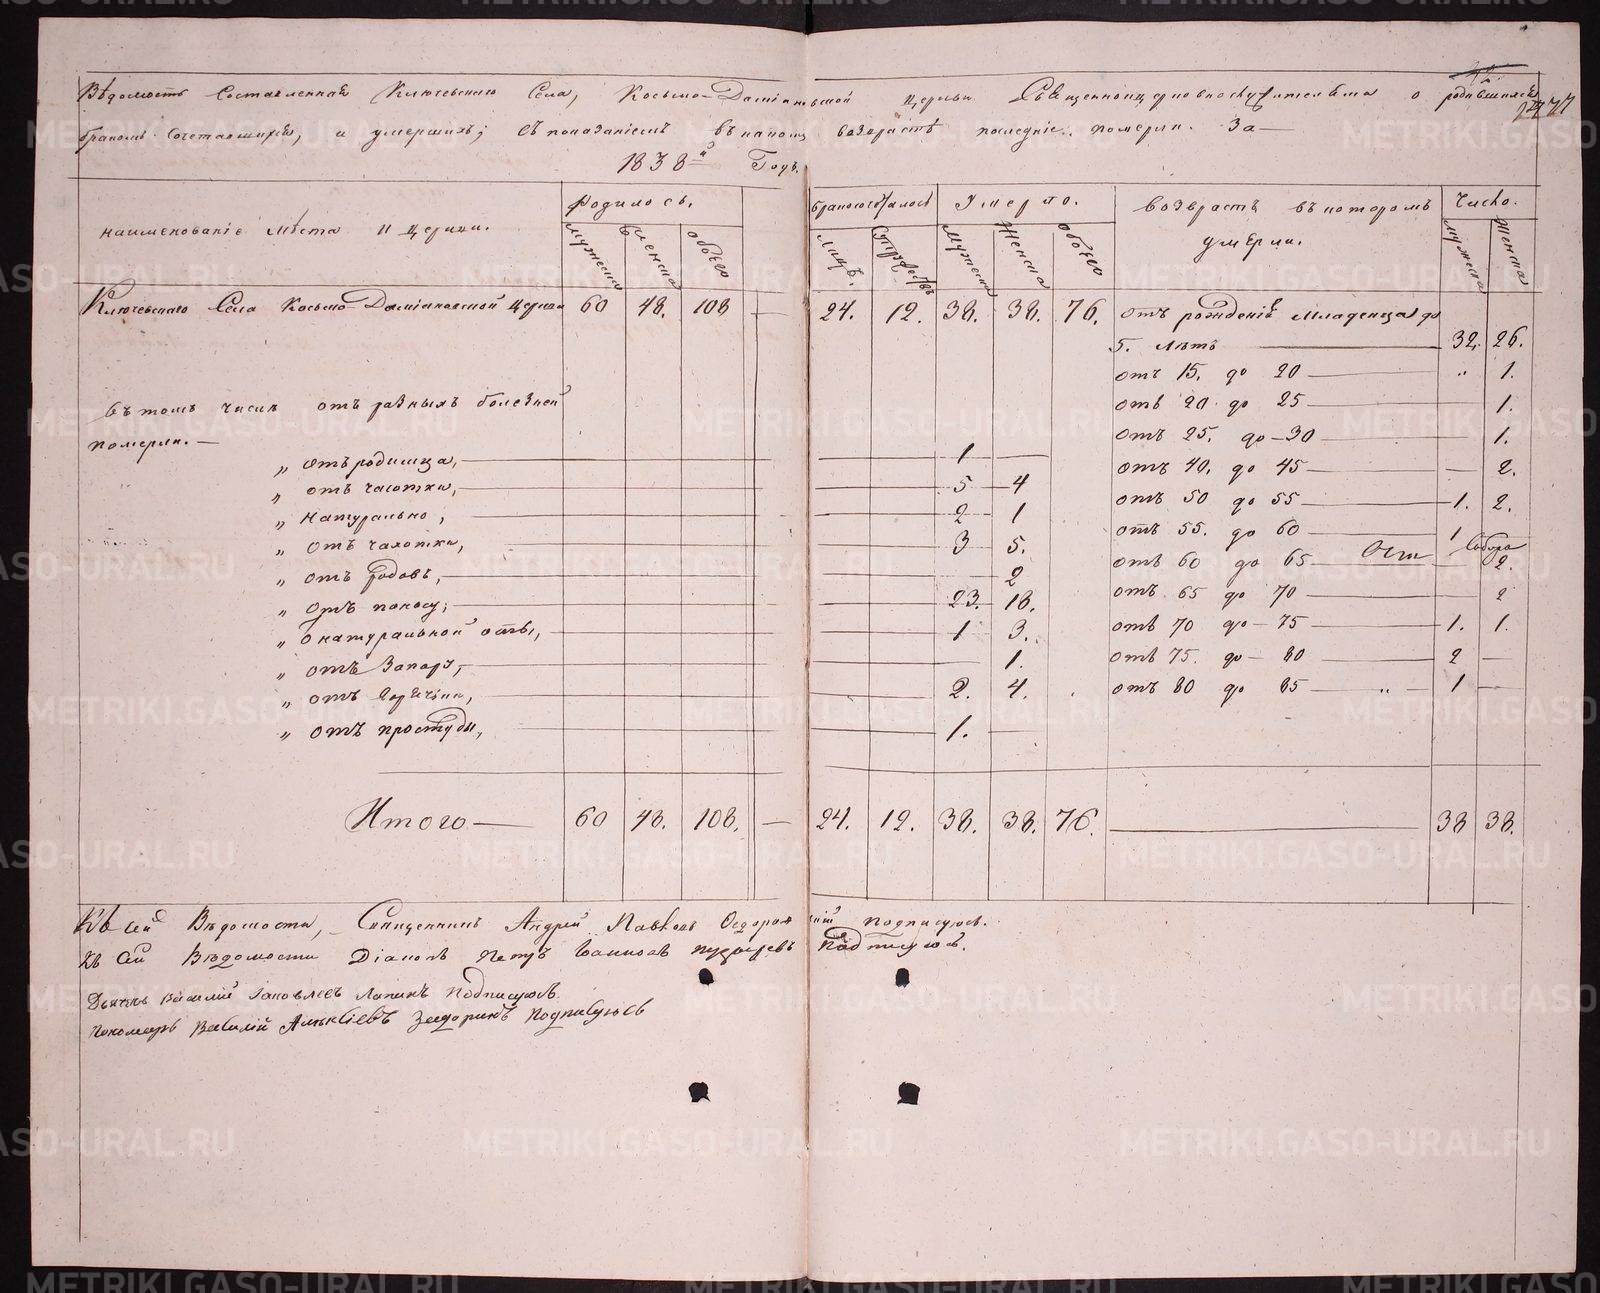 Вѣдомость Составленная Ключевскаго Села, Косьмо-Даміановской церкви Священноцерковнослужителями о родившихся
бракомъ сочетавшихся, и умершихъ; съ показаніемъ въ какомъ возрастѣ последніе померли. За—
1838й Годъ.
наименованіе Мѣста и церкви.
Родилось.
мужеска
женска
обоего
браковосочеталось
лицъ.
супружествъ
Умерло.
мужеска
Женска
обоего
Возврастъ въ которомъ
умерли.
Число.
мужеска
Женска
Ключевскаго Села Косьмо-Даміановской церкви 60 48. 108 — 24. 12. 38. 38. 76. отъ рожденія младенца до
5. лѣтъ — 32. 26.
отъ 15. до 20 — „ 1.
отъ 20 до 25 — 1.
отъ 25. до — 30 — 1.
отъ 40. до 45 — — 2.
отъ 50 до 55 — 1. 2.
отъ 55. до 60 — 1
отъ 60 до 65 — 2.
отъ 65 до 70 — 2
отъ 70 до — 75 — 1. 1.
отъ 75. до — 80 — 2 —
отъ 80 до 85 — „ — 1 —
въ томъ числѣ отъ разныхъ болезней
померли. —
„ отъ родимца, — 1 —
„ отъ чахотки, — 5 — 4
„ Натурально, — 2 1
„ отъ чахотки, — 3 5.
„ отъ родовъ, — 2
„ отъ поносу; — 23. 18.
„ 1 3.
„ отъ Запору, — 1.
„ отъ горячьки, — 2. 4.
„ отъ простуды, — 1. —
Итого — 60 48. 108. — 24. 12. 38. 38. 76. — 38 38.
Къ сей Вѣдомости, Священникъ Андрей подписуюсь.
Къ сей Вѣдомости Діаконъ Петръ Іоанновъ Подписуюсь.
Дьячекъ Василій Іаковлевъ Лапинъ Подписуюсь.
Пономарь Василій Алексіевъ Подписуюсь
METRIKI.GASO-URAL.RU